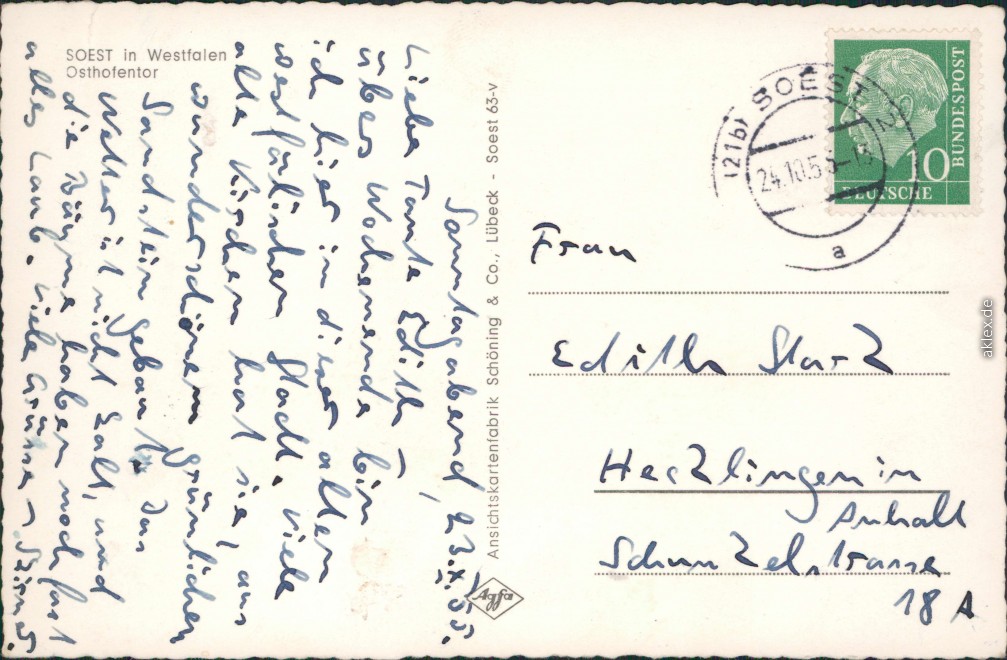 SOEST in Westfalen
Osthofentor
Sonntagabend, 23.X.55.
Liebe Tante Edith –
übers Wochenende bin
ich hier in dieser alten
westfälischen Stadt. Viele
alte Kirchen hat sie, aus
wunderschönem grünlichen
Sandstein gebaut. Das
Wetter ist nicht kalt, und
die Bäume haben noch fast
alles Laub. Viele Grüsse –
Ansichtskartenfabrik Schöning & Co., Lübeck - Soest 63-V
Agfa
(21b) SOEST 2
24.10.55-13
a
10
DEUTSCHE
BUNDESPOST
Frau
Edith Starz
Hecklingen in
Anhalt
Schunkelstrasse
18 A
aklex.de